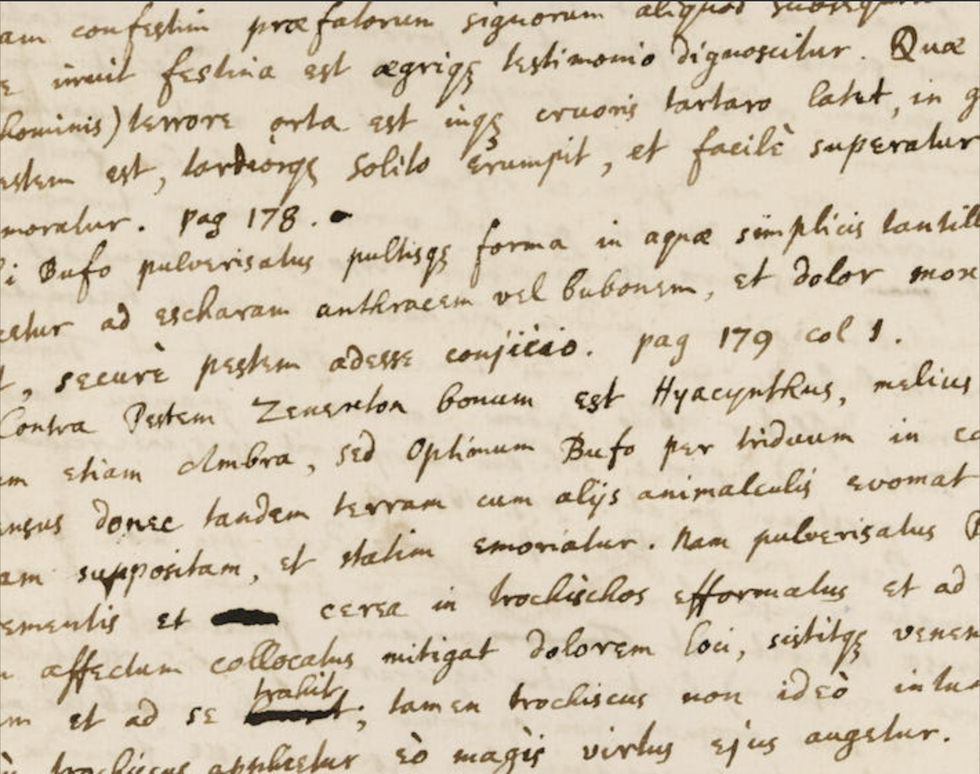 am confestim præfatorum signorum aliquod
irruit festina est ægriqȝ testimonio dignoscitur. Quæ
hominis) terrore orta est inqȝ cruoris tartaro latet, in
estem est, tardiorqȝ solito erumpit, et facilè superatur
moratur. pag 178.
i Bufo pulverisatus pultisqȝ forma in aquæ simplicis tantill
cetur ad escharam anthracem vel bubonem, et dolor mox
t, securè pestem adesse conjicio. pag 179 col 1.
Contra Pestem Zenexton bonum est Hyacynthus, melius
m etiam Ambra, sed Optimum Bufo per triduum in
ensus donec tandem terram cum alijs animalculis evomat
am suppositam, et statim emoriatur. Nam pulverisatus
ementis et cerea in trochischos efformatus et ad
affectum collocatus mitigat dolorem loci, sistitqȝ venen
m et ad se trahit; tamen trochiscus non ideò
trochiscus applicetur eò magìs virtus ejus augetur.